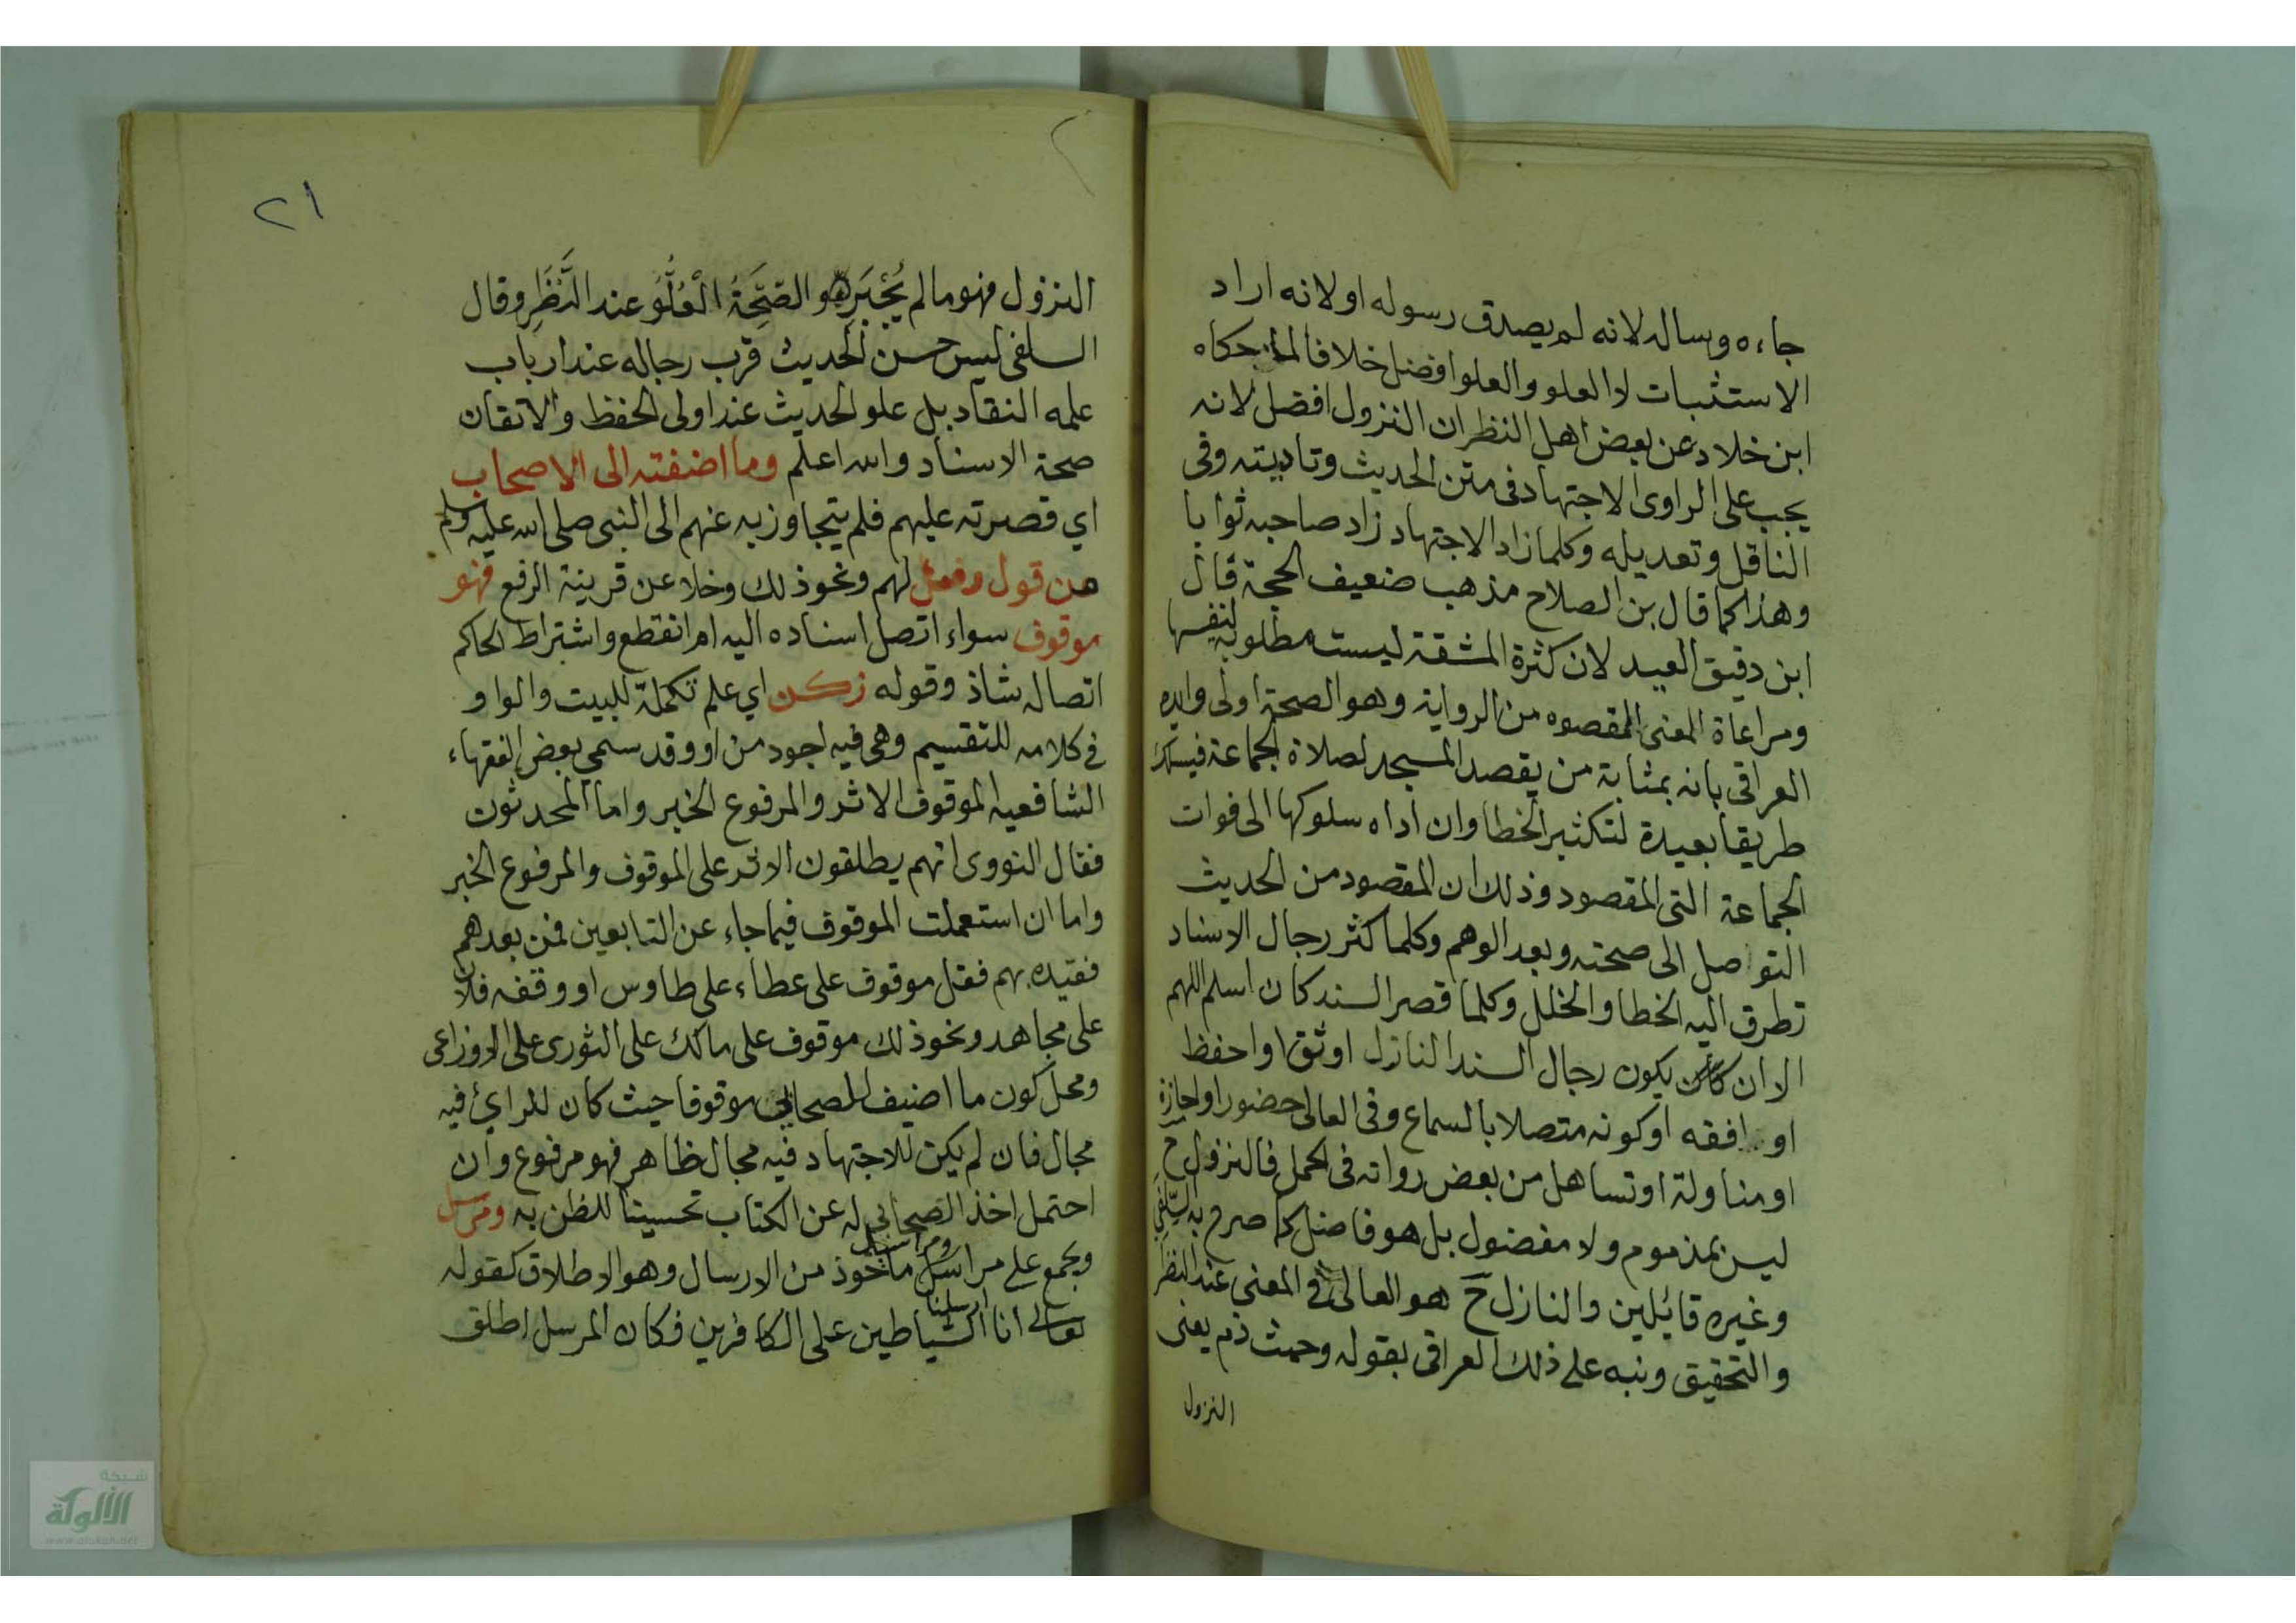 جاءه وساله لانه لم يصدق رسوله او لانه اراد
الاستثبات لا العلو والعلو افضل خلافا لما حكاه
ابن خلاد عن بعض اهل النظر ان النزول افضل لانه
يجب على الراوى الاجتهاد فى متن الحديث وتاديته وفى
الناقل وتعديله وكلما زاد الاجتهاد زاد صاحبه ثوابا
وهذا كما قال بن الصلاح مذهب ضعيف الحجة قال
ابن دقيق العيد لان كثرة المشقة ليست مطلوبة لنفسها
ومراعاة المعنى المقصوه من الرواية وهو الصحة اولى وايده
العراقى بانه بمثابة من يقصد المسجد لصلاة الجماعة فيسلك
طريقا بعيدة لتكثير الخطا وان اداه سلوكها الى فوات
الجماعة التى المقصود وذلك ان المقصود من الحديث
التواصل الى صحته وبعد الوهم وكلما كثر رجال الاسناد
تطرق اليه الخطا والخلل وكلما قصر السند كان اسلم اللهم
الا ان يكون رجال السند النازل اوثق او احفظ
او افقه او كونه متصلا بالسماع وفى العالى حضور او اجازة
او مناولة او تساهل من بعض رواته فى الحمل فالنزول ح
ليس بمذموم ولا مفضول بل هو فاضل كما صرح به السلفي
وغيره قائلين والنازل ح هو العالى فى المعنى عند النظر
والتحقيق ونبه على ذلك العراقى بقوله وحيث ذم يعنى
النزول
٢١
النزول فهو ما لم يُجْبَر هو الصِّحَّةُ الْعُلُوُّ عند النَّظَرِ وقال
السلفى ليس حسن الحديث قرب رجاله عند ارباب
علمه النقاد بل علو الحديث عند اولى الحفظ والاتقان
صحة الاسناد والله اعلم وما اضفته الى الاصحاب
اي قصرته عليهم فلم يتجاوز به عنهم الى النبى صلى الله عليه وسلم
من قول وفعل لهم ونحو ذلك وخلا عن قرينة الرفع فهو
موقوف سواء اتصل اسناده اليه ام انقطع واشتراط الحاكم
اتصاله شاذ وقوله زكن اي علم تكملة للبيت والواو
فى كلامه للتقسيم وهى فيه اجود من او وقد سمى بعض الفقهاء
الشافعيه الموقوف الاثر والمرفوع الخبر واما المحدثون
فقال النووى انهم يطلقون الاثر على الموقوف والمرفوع الخبر
واما ان استعملت الموقوف فيما جاء عن التابعين فمن بعدهم
فقيده بهم فقل موقوف على عطاء على طاوس او وقفه فلان
على مجاهد ونحو ذلك موقوف على مالك على الثورى على الاوزاعى
ومحل كون ما اضيف للصحابي موقوفا حيث كان للراي فيه
مجال فان لم يكن للاجتهاد فيه مجال ظاهر فهو مرفوع وان
احتمل اخذ الصحابي له عن الكتاب تحسينا للظن به ومرسل
ويجمع على مراسل ومراسيل ماخوذ من الارسال وهو الاطلاق كقوله
تعالى انا ارسلنا الشياطين على الكافرين فكان المرسل اطلق
شبكة
الألوكة
www.alukah.net